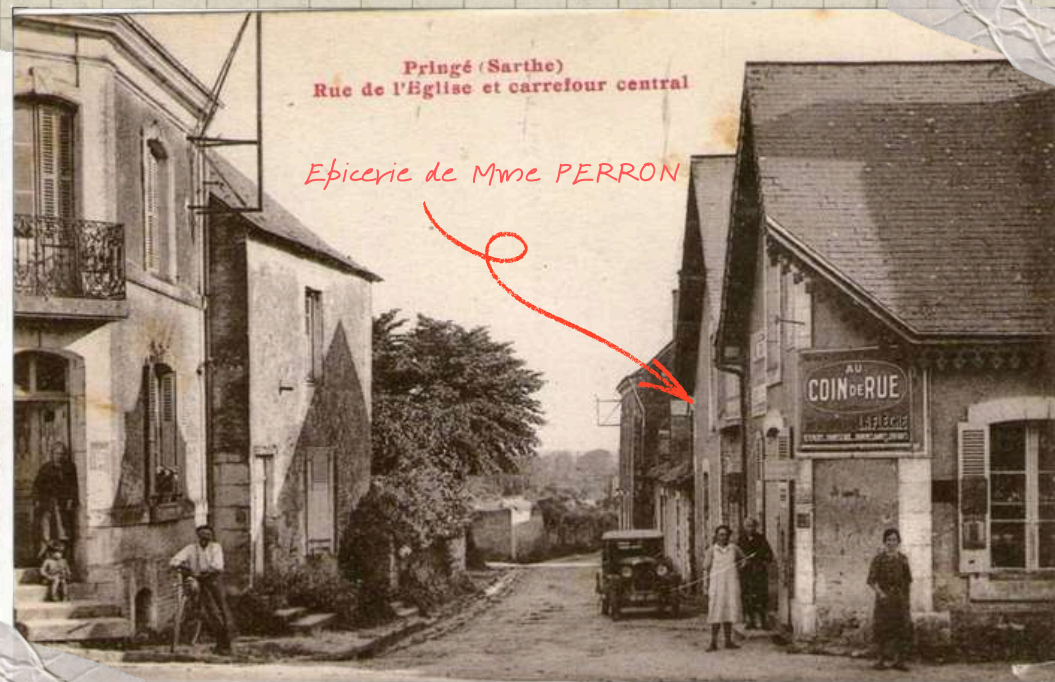 Pringé (Sarthe)
Rue de l'Eglise et carrefour central
Epicerie de Mme PERRON
AU
COIN DE RUE
LA FLÈCHE